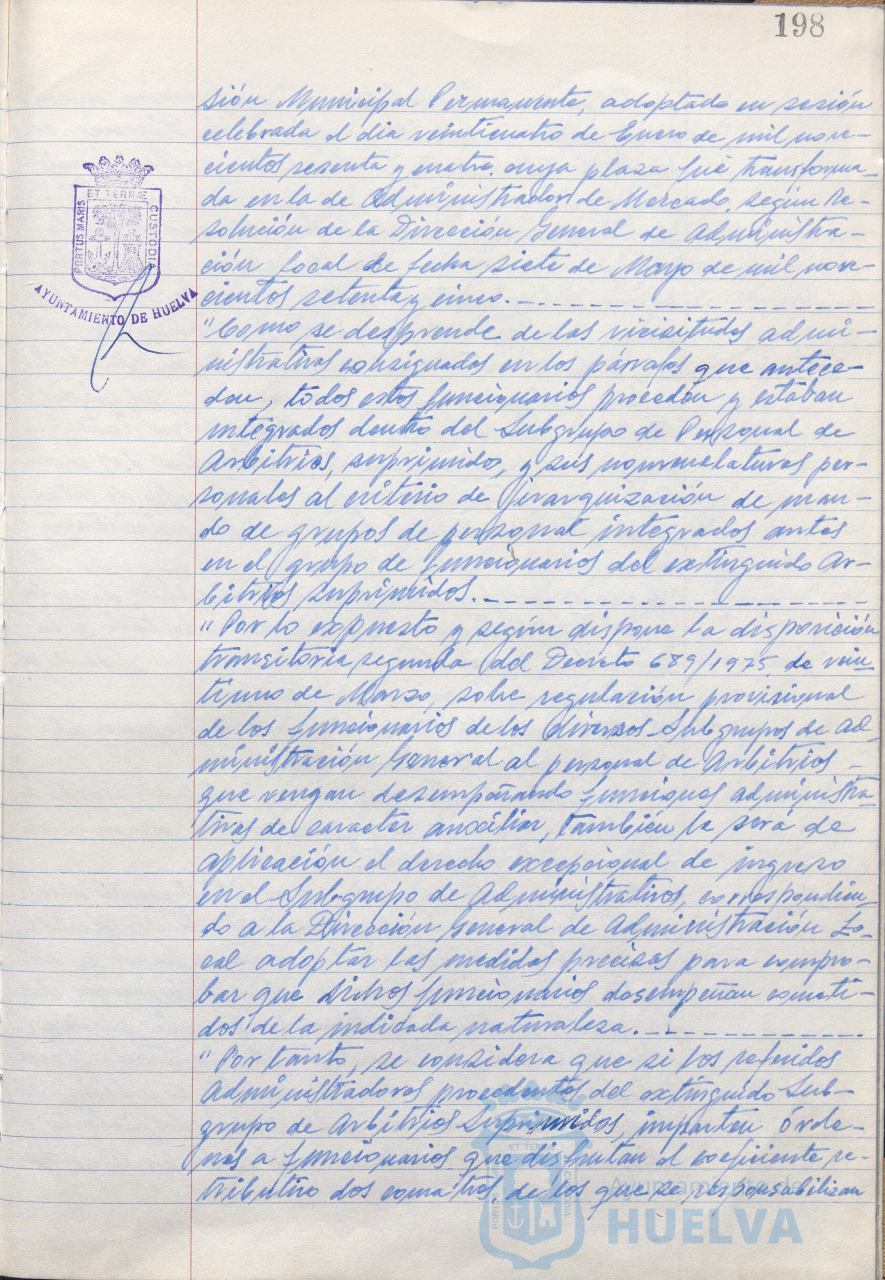 198
sión Municipal Permanente, adoptado en sesión
celebrada el dia veinticuatro de Enero de mil nove-
cientos sesenta y cuatro, cuya plaza fué transforma-
da en la de Administrador de Mercado, según Re-
solución de la Dirección General de Administra-
ción Local de fecha siete de Mayo de mil nove-
cientos setenta y cinco.
"Como se desprende de las vicisitudes admi-
nistrativas consignadas en los párrafos que antece-
den, todos estos funcionarios proceden y estaban
integrados dentro del Subgrupo de Personal de
Arbitrios, suprimido, y sus nomenclaturas per-
sonales al criterio de jerarquización de man-
do de grupos de personal integrados antes
en el grupo de funcionarios del extinguido Ar-
bitrios suprimidos.
"Por lo expuesto y según dispone la disposición
transitoria segunda del Decreto 689/1975, de vein-
tiuno de Marzo, sobre regulación provisional
de los funcionarios de los diversos Subgrupos de Ad-
ministración General al personal de Arbitrios -
que vengan desempeñando funciones administra-
tivas de caracter auxiliar, también le será de
aplicación el derecho excepcional de ingreso
en el Subgrupo de Administrativos, correspondien-
do a la Dirección General de Administración Lo-
cal adoptar las medidas precisas para compro-
bar que dichos funcionarios desempeñan cometi-
dos de la indidada naturaleza.
"Por tanto, se considera que si los referidos
Administradores procedentes del extinguido Sub-
grupo de Arbitrios Suprimidos, imparten órde-
nes a funcionarios que disfrutan el coeficiente re-
tributivo dos coma tres, de los que se responsabilizan
PORTUS MARIS ET TERRÆ CUSTODIA
AYUNTAMIENTO DE HUELVA
Ayuntamiento de
HUELVA